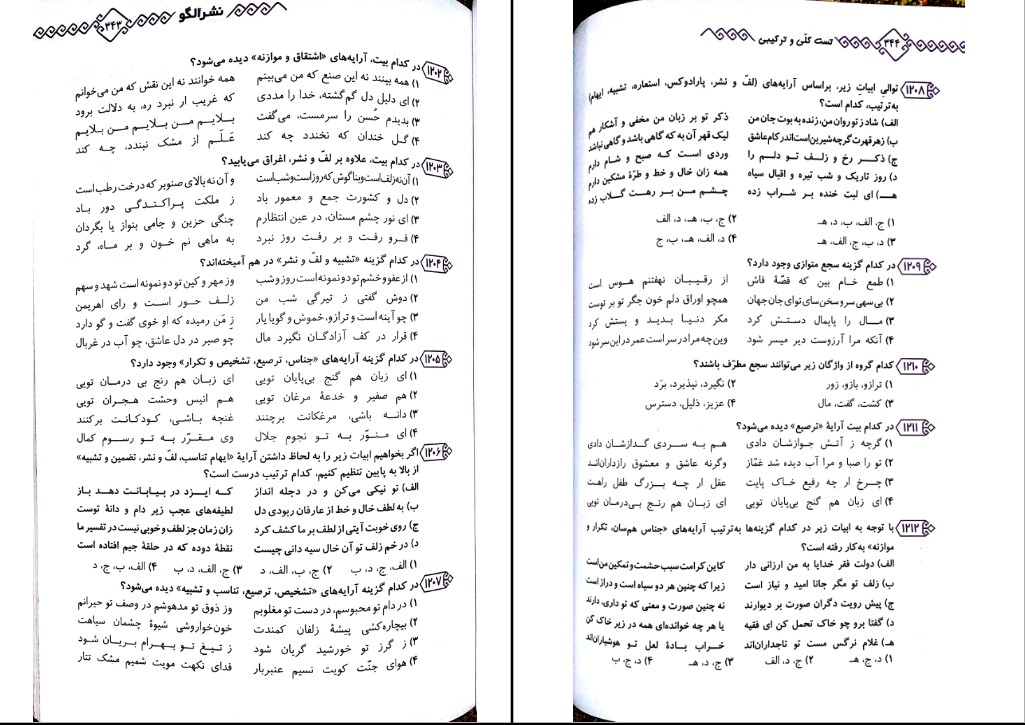 نشرالگو
۳۴۳
۱۲۰۲ در کدام بیت، آرایه‌های «اشتقاق و موازنه» دیده می‌شود؟
۱) همه بینند نه این صنع که من می‌بینم همه خوانند نه این نقش که من می‌خوانم
۲) ای دلیل دل گم‌گشته، خدا را مددی که غریب ار نبرد ره، به دلالت برود
۳) بدیدم حُسن را سرمست، می‌گفت بلایم من بلایم من بلایم
۴) گل خندان که نخندد چه کند عَلَم از مشک نبندد، چه کند
۱۲۰۳ در کدام بیت، علاوه بر لفّ و نشر، اغراق می‌یابید؟
۱) آن نه زلف است و بناگوش که روز است و شب است و آن نه بالای صنوبر که درخت رطب است
۲) دل و کشورت جمع و معمور باد ز ملکت پراکندگی دور باد
۳) ای نور چشم مستان، در عین انتظارم چنگی حزین و جامی بنواز یا بگردان
۴) فرو رفت و بر رفت روز نبرد به ماهی نم خون و بر ماه، گرد
۱۲۰۴ در کدام گزینه «تشبیه و لفّ و نشر» در هم آمیخته‌اند؟
۱) از عفو و خشم تو دو نمونه است روز و شب وز مهر و کین تو دو نمونه است شهد و سهم
۲) دوش گفتی ز تیرگی شب من زلف حور است و رای اهریمن
۳) چو آینه است و ترازو، خموش و گویا یار ز مَن رمیده که او خوی گفت و گو دارد
۴) قرار در کف آزادگان نگیرد مال چو صبر در دل عاشق، چو آب در غربال
۱۲۰۵ در کدام گزینه آرایه‌های «جناس، ترصیع، تشخیص و تکرار» وجود دارد؟
۱) ای زبان هم گنج بی‌پایان تویی ای زبان هم رنج بی درمان تویی
۲) هم صفیر و خدعهٔ مرغان تویی هم انیس وحشت هجران تویی
۳) دانه باشی، مرغکانت برچنند غنچه باشی، کودکانت برکنند
۴) ای منوّر به تو نجوم جلال وی مقرّر به تو رسوم کمال
۱۲۰۶ اگر بخواهیم ابیات زیر را به لحاظ داشتن آرایهٔ «ایهام تناسب، لفّ و نشر، تضمین و تشبیه»
از بالا به پایین تنظیم کنیم، کدام ترتیب درست است؟
الف) تو نیکی می‌کن و در دجله انداز که ایزد در بیابانت دهد باز
ب) به لطف خال و خط از عارفان ربودی دل لطیفه‌های عجب زیر دام و دانهٔ توست
ج) روی خوبت آیتی از لطف بر ما کشف کرد زان زمان جز لطف و خوبی نیست در تفسیر ما
د) در خم زلف تو آن خال سیه دانی چیست نقطهٔ دوده که در حلقهٔ جیم افتاده است
۱) الف، ج، د، ب ۲) ج، ب، الف، د ۳) ج، الف، د، ب ۴) الف، ب، ج، د
۱۲۰۷ در کدام گزینه آرایه‌های «تشخیص، ترصیع، تناسب و تشبیه» دیده می‌شود؟
۱) در دام تو محبوسم، در دست تو مغلوبم وز ذوق تو مدهوشم در وصف تو حیرانم
۲) بیچاره‌کشی پیشهٔ زلفان کمندت خون‌خوار‌وشی شیوهٔ چشمان سیاهت
۳) ز گرز تو خورشید گریان شود ز تیغ تو بهرام بریان شود
۴) هوای جنّت کویت نسیم عنبربار فدای نکهت مویت شمیم مشک تتار
تست کلّی و ترکیبی
۳۴۴
۱۲۰۸ توالی ابیات زیر، براساس آرایه‌های (لفّ و نشر، پارادوکس، استعاره، تشبیه، ایهام)
به‌ترتیب، کدام است؟
الف) شاد ز تو روان من، زنده به بوت جان من ذکر تو بر زبان من مخفی و آشکار هم
ب) زهر قهرت گرچه شیرین است اندر کام عاشق لیک قهر آن به که گاهی باشد و گاهی نباشد
ج) ذکر رخ و زلف تو دلم را وردی است که صبح و شام دارم
د) روز تاریک و شب تیره و اقبال سیاه همه زان خال و خط و طرّهٔ مشکین دارم
هـ) ای لبت خنده بر شراب زده چشم من بر رهت گلاب زده
۱) ج، الف، ب، د، هـ ۲) ج، ب، هـ، د، الف
۳) د، ب، ج، الف، هـ ۴) د، الف، هـ، ب، ج
۱۲۰۹ در کدام گزینه سجع متوازی وجود دارد؟
۱) طمع خام بین که قصّهٔ فاش از رقیبان نهفتنم هوس است
۲) بی‌سهی سرو سخن‌سای توای جان جهان همچو اوراق دلم خون جگر تو بر توست
۳) مال را پایمال دستش کرد مکر دنیا بدید و پستش کرد
۴) آنکه مرا آرزوست دیر میسر شود وین چه مرا در سر است عمر در این سر شود
۱۲۱۰ کدام گروه از واژگان زیر می‌توانند سجع مطرّف باشند؟
۱) ترازو، بازو، زور ۲) نگیرد، نپذیرد، برَد
۳) کشت، گفت، مال ۴) عزیز، ذلیل، دسترس
۱۲۱۱ در کدام بیت آرایهٔ «ترصیع» دیده می‌شود؟
۱) گرچه ز آتش جوازشان دادی هم به سردی گدازشان دادی
۲) تو را صبا و مرا آب دیده شد غمّاز وگرنه عاشق و معشوق رازداران‌اند
۳) چرخ ار چه رفیع خاک پایت عقل ار چه بزرگ طفل راهت
۴) ای زبان هم گنج بی‌پایان تویی ای زبان هم رنج بی‌درمان تویی
۱۲۱۲ با توجه به ابیات زیر در کدام گزینه‌ها به‌ترتیب آرایه‌های «جناس هم‌سان، تکرار و
موازنه» به‌کار رفته است؟
الف) دولت فقر خدایا به من ارزانی دار کاین کرامت سبب حشمت و تمکین من است
ب) زلف تو مگر جانا امید و نیاز است زیرا که چنین هر دو سیاه است و دراز است
ج) پیش رویت دگران صورت بر دیوارند نه چنین صورت و معنی که تو داری، دارند
د) گفتا برو چو خاک تحمل کن ای فقیه یا هر چه خوانده‌ای همه در زیر خاک کن
هـ) غلام نرگس مست تو تاجداران‌اند خراب بادهٔ لعل تو هوشیاران‌اند
۱) د، ج، هـ ۲) ج، د، الف ۳) ج، د، هـ ۴) د، ج، ب